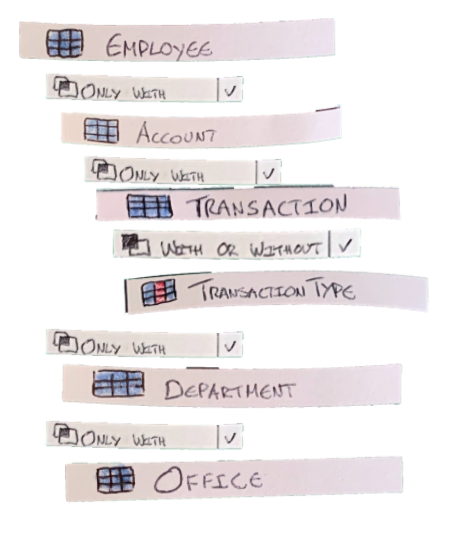 EMPLOYEE
ONLY WITH
ACCOUNT
ONLY WITH
TRANSACTION
WITH OR WITHOUT
TRANSACTION TYPE
ONLY WITH
DEPARTMENT
ONLY WITH
OFFICE